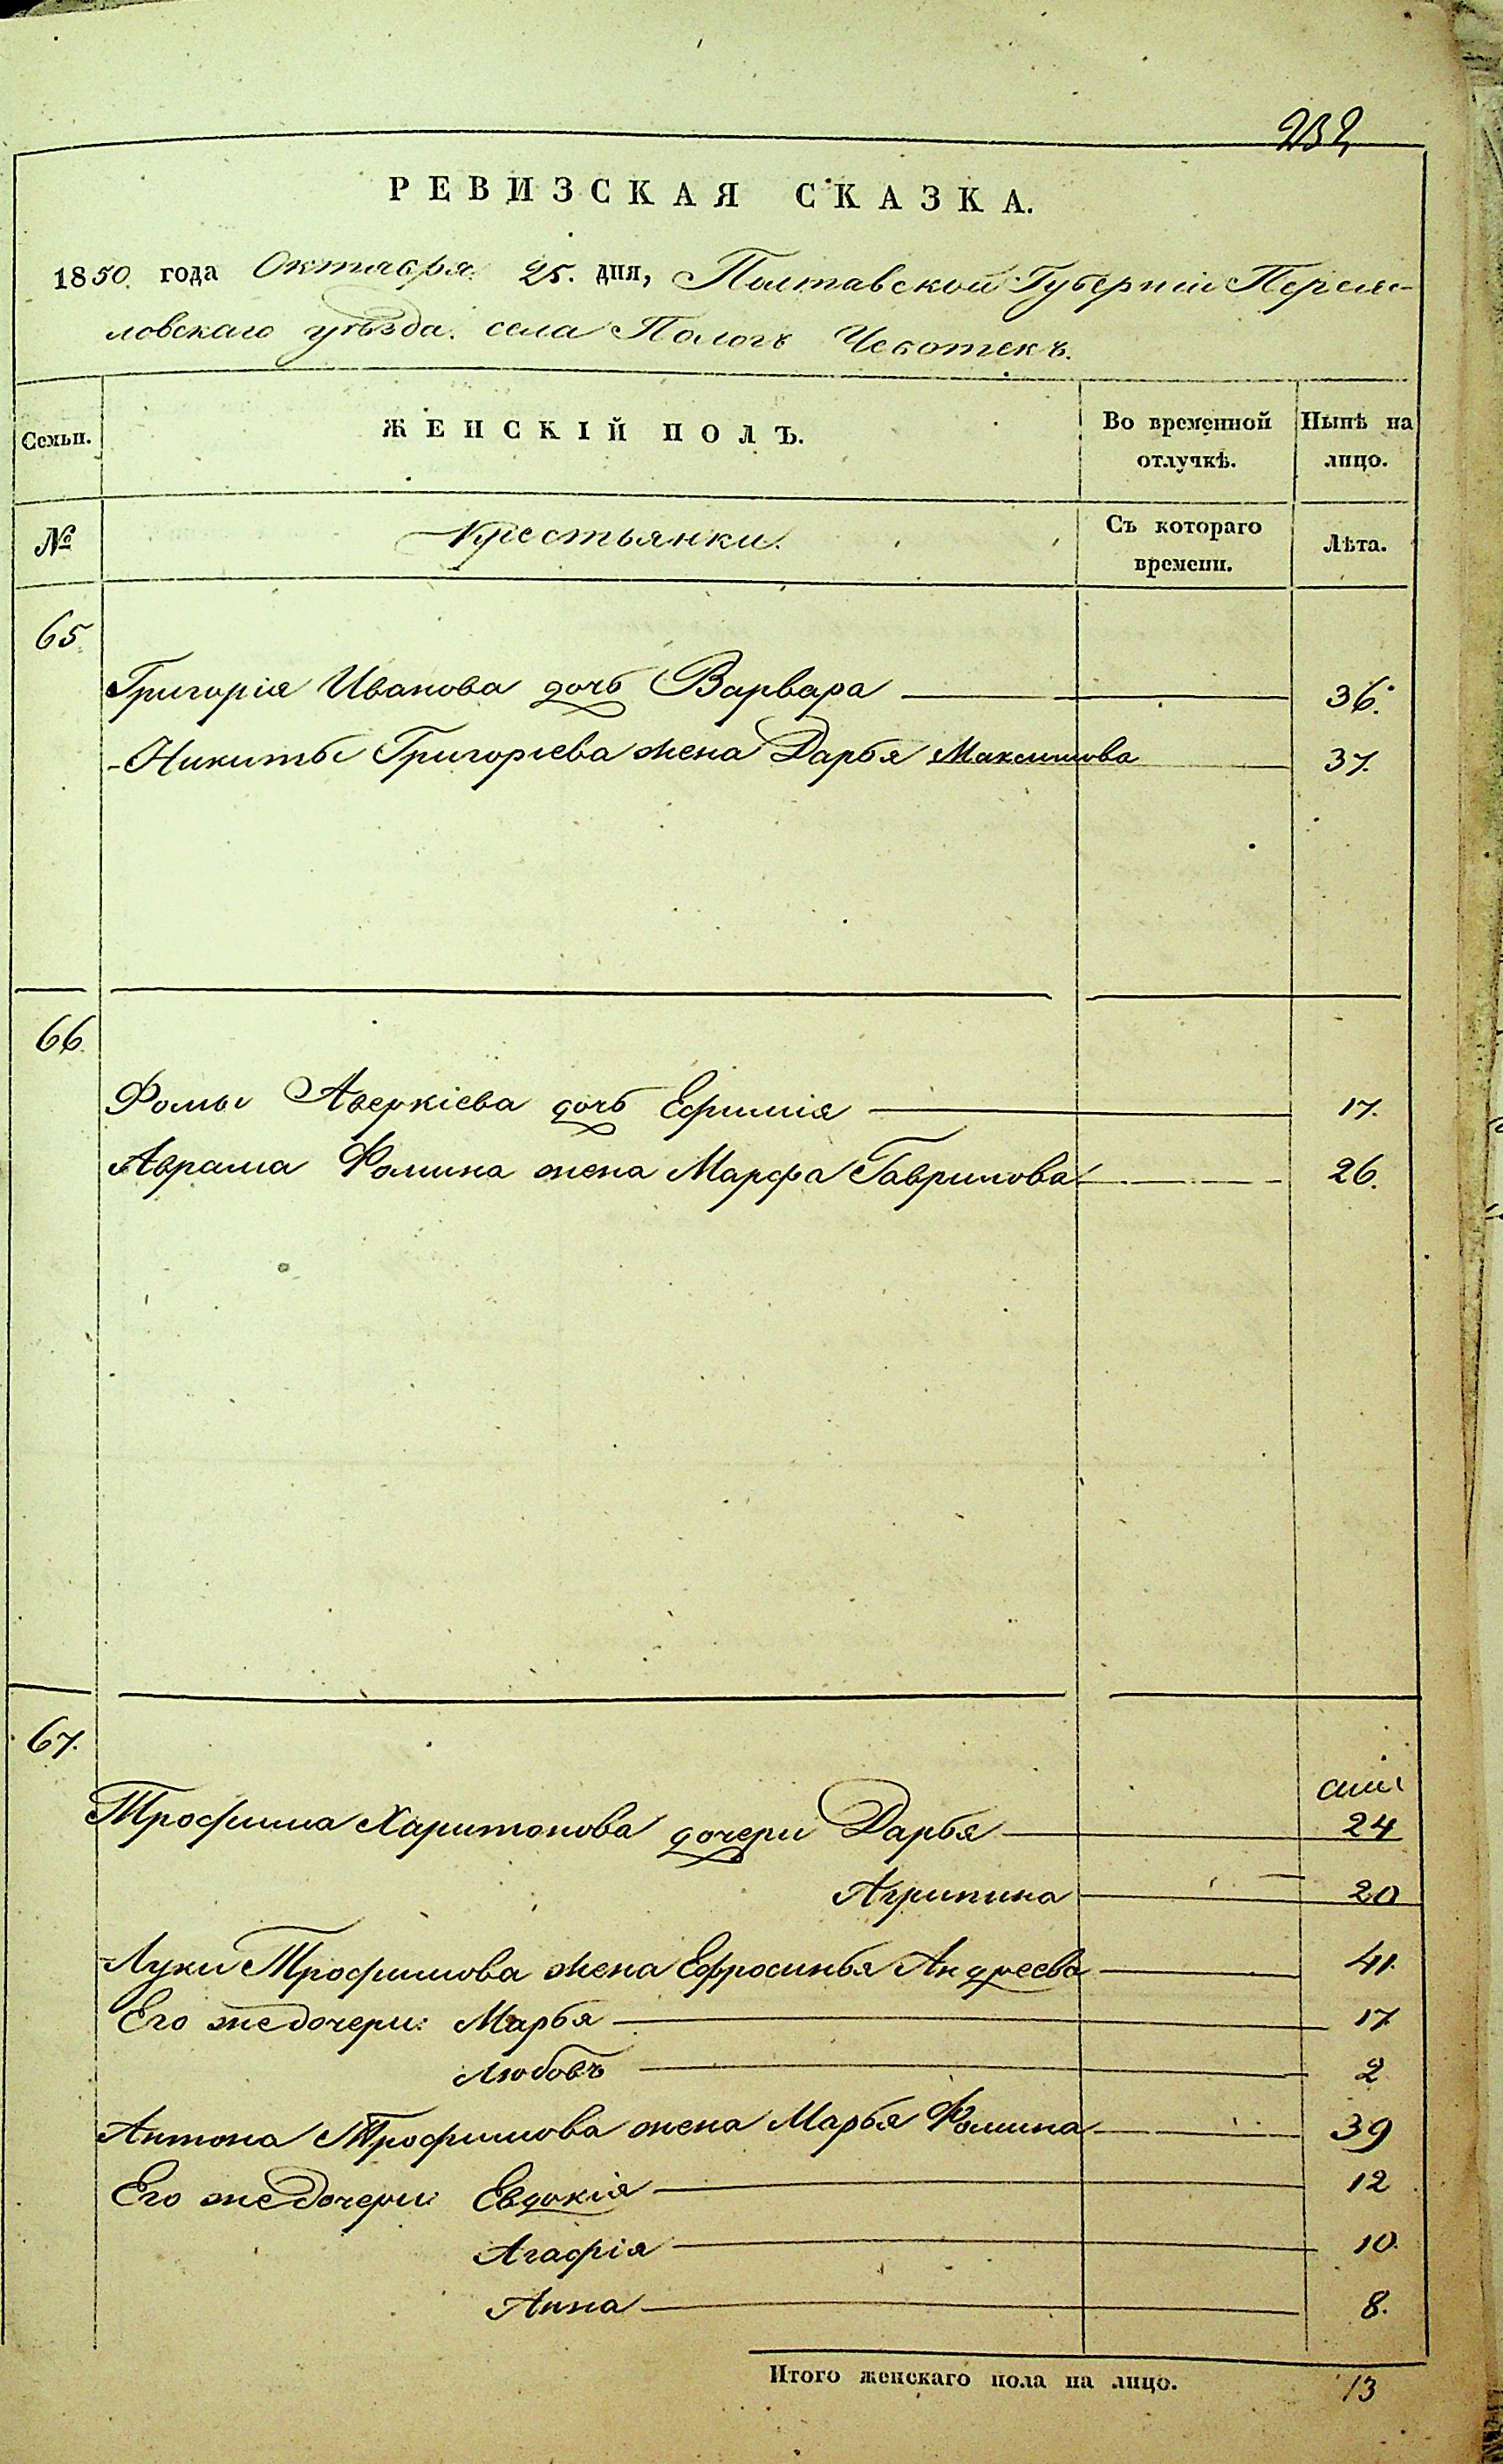 232
РЕВИЗСКАЯ СКАЗКА.
1850. года Октября 25. дня, Полтавской Губерніи Перея-
ловскаго уѣзда. села Пологъ Чеботекъ.
Семьи.
ЖЕНСКІЙ ПОЛЪ.
Во временной отлучкѣ.
Нынѣ на лицо.
№
Крестьянки.
Съ котораго времени.
Лѣта.
65.
Григорія Иванова дочь Варвара 36.
Никиты Григорьева жена Дарья Максимова 37.
66.
Фомы Аверкіева дочь Ефимія 17.
Аврама Фомина жена Марфа Гаврилова 26.
67.
Трофима Харитонова дочери Дарья 24
Агрипина 20
Луки Трофимова жена Ефросинья Андреева 41.
Его же дочери: Марья 17.
Любовъ 2
Антона Трофимова жена Марья Фомина 39
Его же дочери: Евдокія 12
Агафія 10.
Анна 8.
Итого женскаго пола на лицо. 13